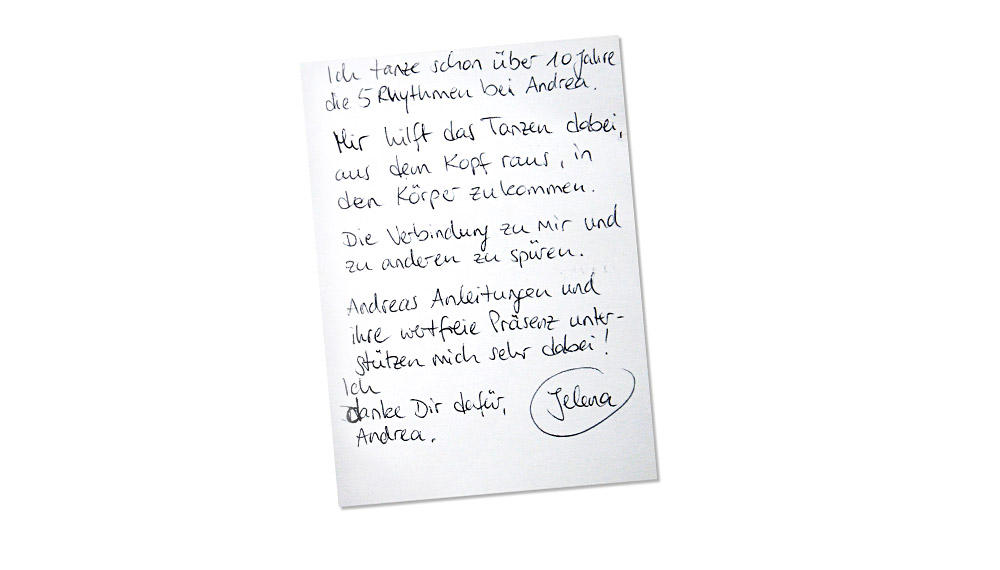 Ich tanze schon über 10 Jahre
die 5 Rhythmen bei Andrea.
Mir hilft das Tanzen dabei,
aus dem Kopf raus, in
den Körper zu kommen.
Die Verbindung zu mir und
zu anderen zu spüren.
Andreas Anleitungen und
ihre wertfreie Präsenz unter-
stützen mich sehr dabei!
Ich
danke Dir dafür,
Andrea.
Jelena